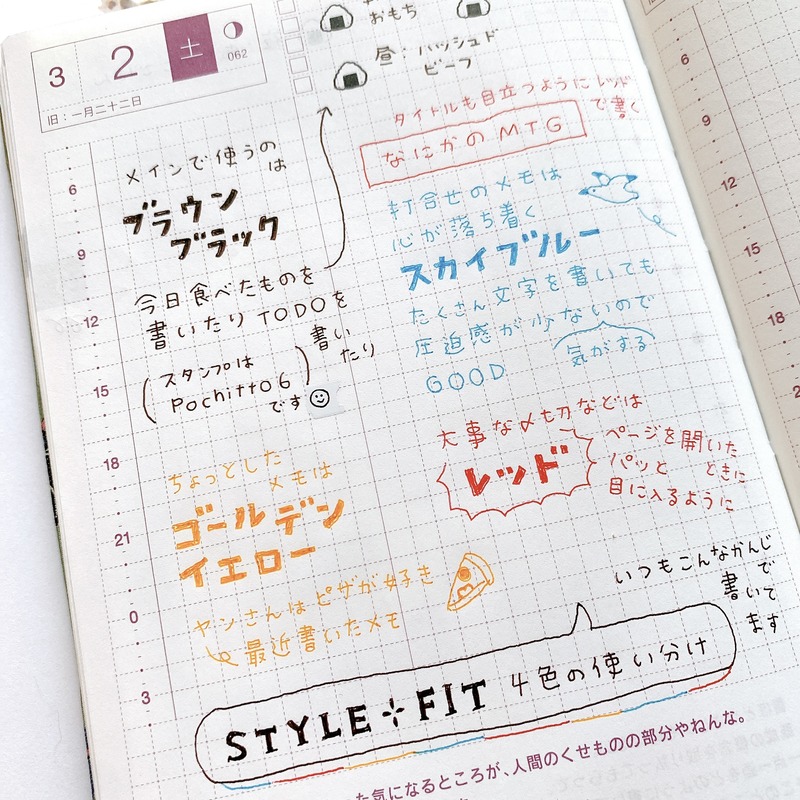 3 2 土
062
旧:一月二十二日
おもち
昼・ハッシュド
ビーフ
タイトルも目立つようにレッド
で書く
なにかのMTG
メインで使うの
は
ブラウン
ブラック
今日食べたものを
書いたりTODOを
書い
たり
(スタンプは
Pochitto6)
です
打合せのメモは
心が落ち着く
スカイブルー
たくさん文字を書いても
圧迫感が少ないので
気がする
GOOD
大事な〆切などは
レッド
ページを開いた
ときに
パッと
目に入るように
ちょっとした
メモは
ゴールデン
イエロー
ヤンさんはピザが好き
最近書いたメモ
いつもこんなかんじ
で
書いて
ます
STYLE FIT 4色の使い分け
た気になるところが、人間のくせものの部分やねんな。
6
9
12
15
18
21
0
3
6
9
12
15
18